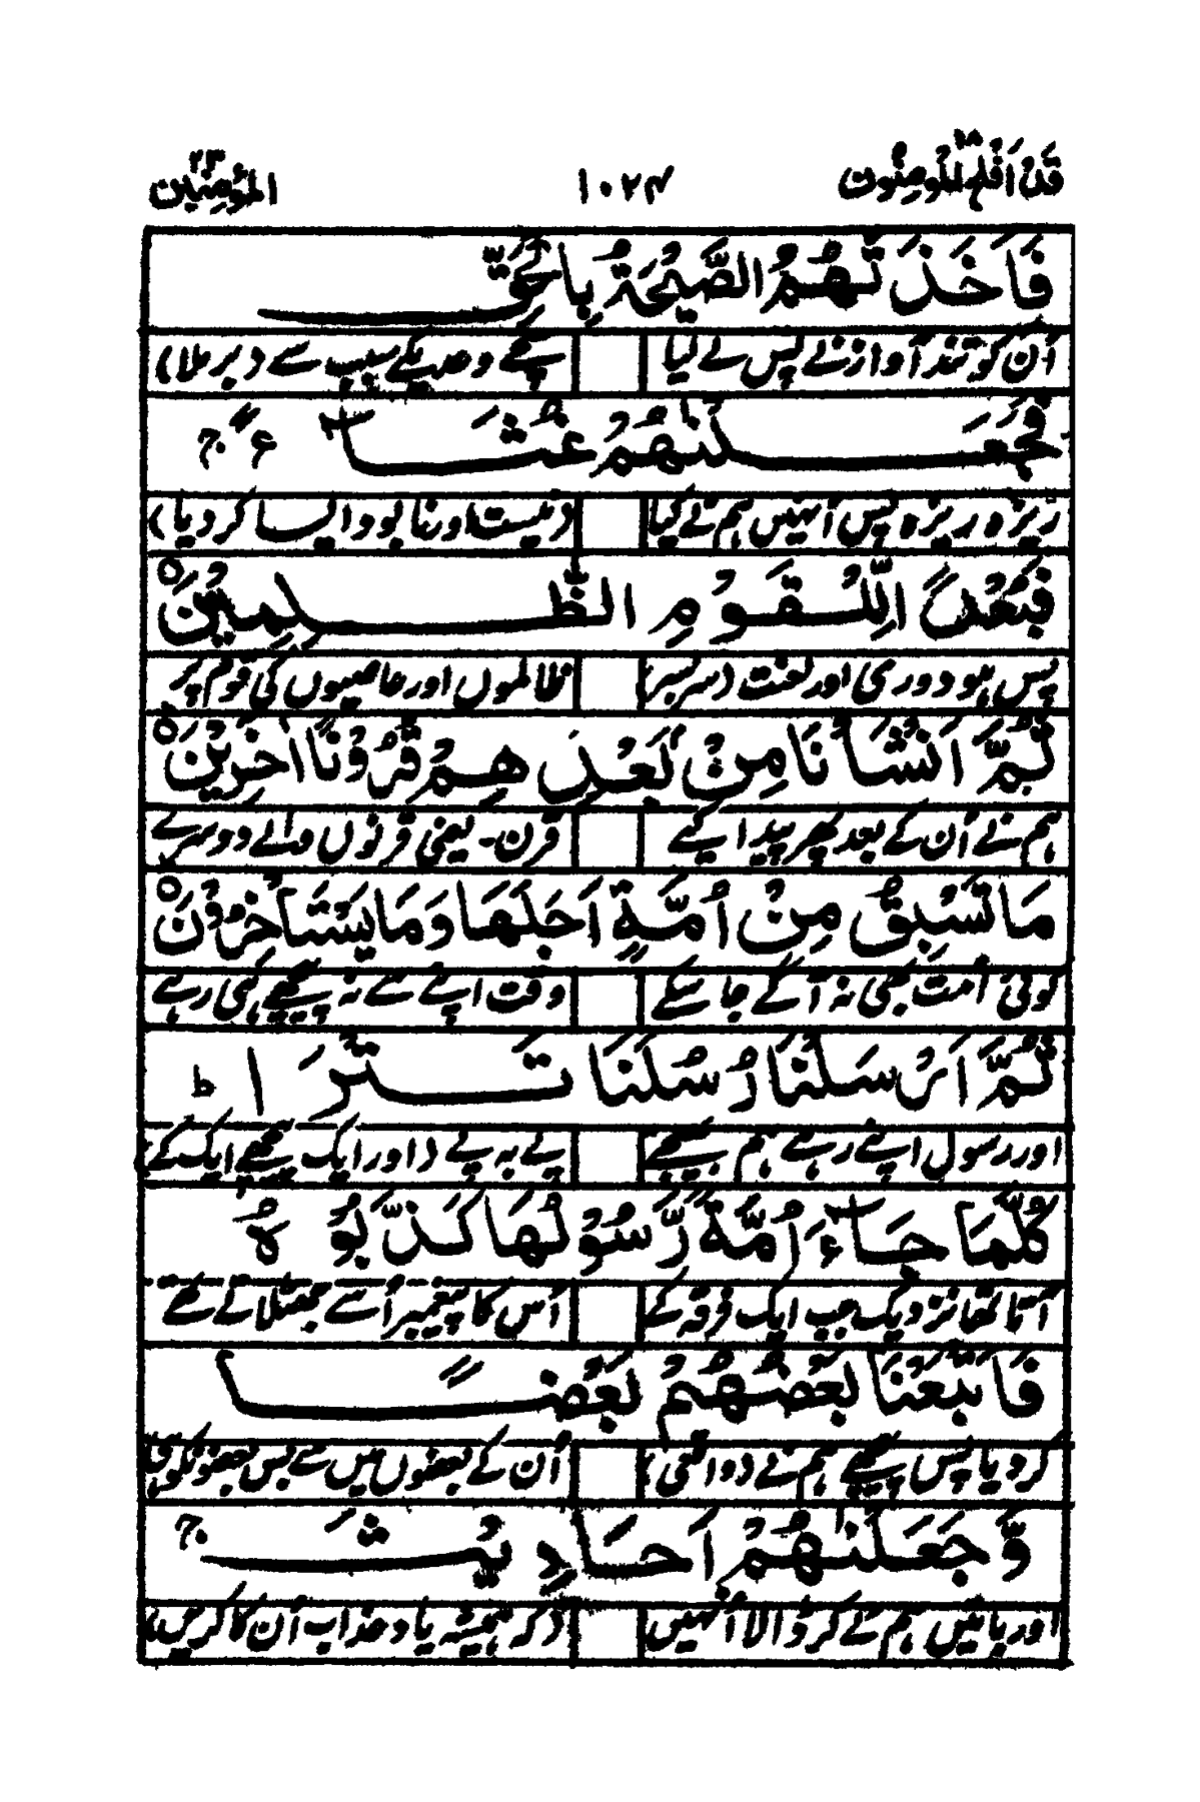 قَدْ اَفْلَحَ الْمُؤْمِنُوْن ١٨ ١٠٢٤ المؤمنين ٢٣
فَاَخَذَتْهُمُ الصَّيْحَةُ بِالْحَقِّ
اُن کو تند آواز نے پس لے لیا سچے وعدیکے سبب سے (برملا)
فَجَعَلْنٰهُمْ غُثَآءً ج
ریزہ ریزہ پس اُنہیں ہم نے کیا (نیست اور نابود ایسا کر دیا)
فَبُعْدًا لِّلْقَوْمِ الظّٰلِمِيْنَ ○
پس ہو دوری اور لعنت (سربسر) ظالموں اور عاصیوں کی قوم پر
ثُمَّ اَنْشَاْنَا مِنْ بَعْدِهِمْ قُرُوْنًا اٰخَرِيْنَ ○
ہم نے اُن کے بعد پھر پیدا کیے قرن۔ یعنی قرنوں والے دوسرے
مَا تَسْبِقُ مِنْ اُمَّةٍ اَجَلَهَا وَمَا يَسْتَاْخِرُوْنَ ○
کوئی اُمت بھی نہ آگے جا سکے وقت اپنے سے نہ پیچھے ہی رہے
ثُمَّ اَرْسَلْنَا رُسُلَنَا تَتْرَا ط
اور رسول اپنے رہے ہم بھیجتے پے بہ پے (اور ایک پیچھے ایک کے)
كُلَّمَا جَآءَ اُمَّةً رَّسُوْلُهَا كَذَّبُوْهُ
آتا تھا نزدیک جب ایک فرقہ کے اُس کا پیغمبر اُسے جھٹلاتے تھے
فَاَتْبَعْنَا بَعْضَهُمْ بَعْضًا
کر دیا پس پیچھے ہم نے (واقعی) اُن کے بعضوں میں سے بس بعضوں کو ہی
وَّجَعَلْنٰهُمْ اَحَادِيْثَ ج
اور باتیں ہم نے کر ڈالا اُنہیں (کہ ہمیشہ یاد عذاب اُن کا کریں)